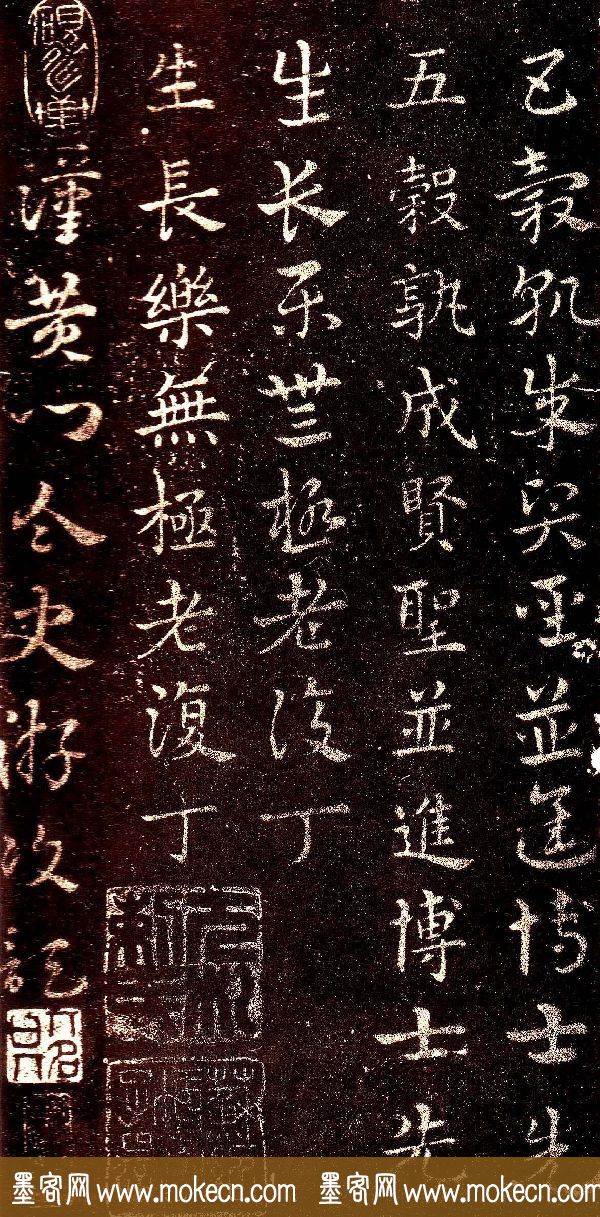 五穀孰成賢聖並進博士先
五穀孰成賢聖並進博士先
生長樂無極老復丁
生長樂無極老復丁
漢黃門令史游
墨客网 www.mokecn.com 墨客网 www.mokecn.com